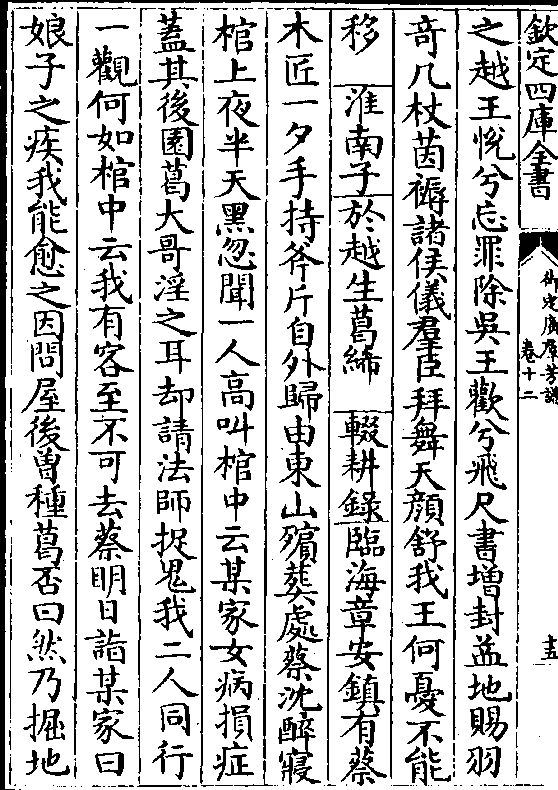 欽定四庫全書
御定廣羣芳譜
卷十二
十五
之越王悅兮忘罪除吳王歡兮飛尺書增封益地賜羽
奇几杖茵褥諸侯儀羣臣拜舞天顔舒我王何憂不能
移 淮南子於越生葛絺 輟耕錄臨海章安鎮有蔡
木匠一夕手持斧斤自外歸由東山殯葬處蔡沈醉寢
棺上夜半天黑忽聞一人高叫棺中云某家女病損症
蓋其後園葛大哥淫之耳却請法師捉鬼我二人同行
一觀何如棺中云我有客至不可去蔡明日詣某家曰
娘子之疾我能愈之因問屋後曽種葛否曰然乃掘地